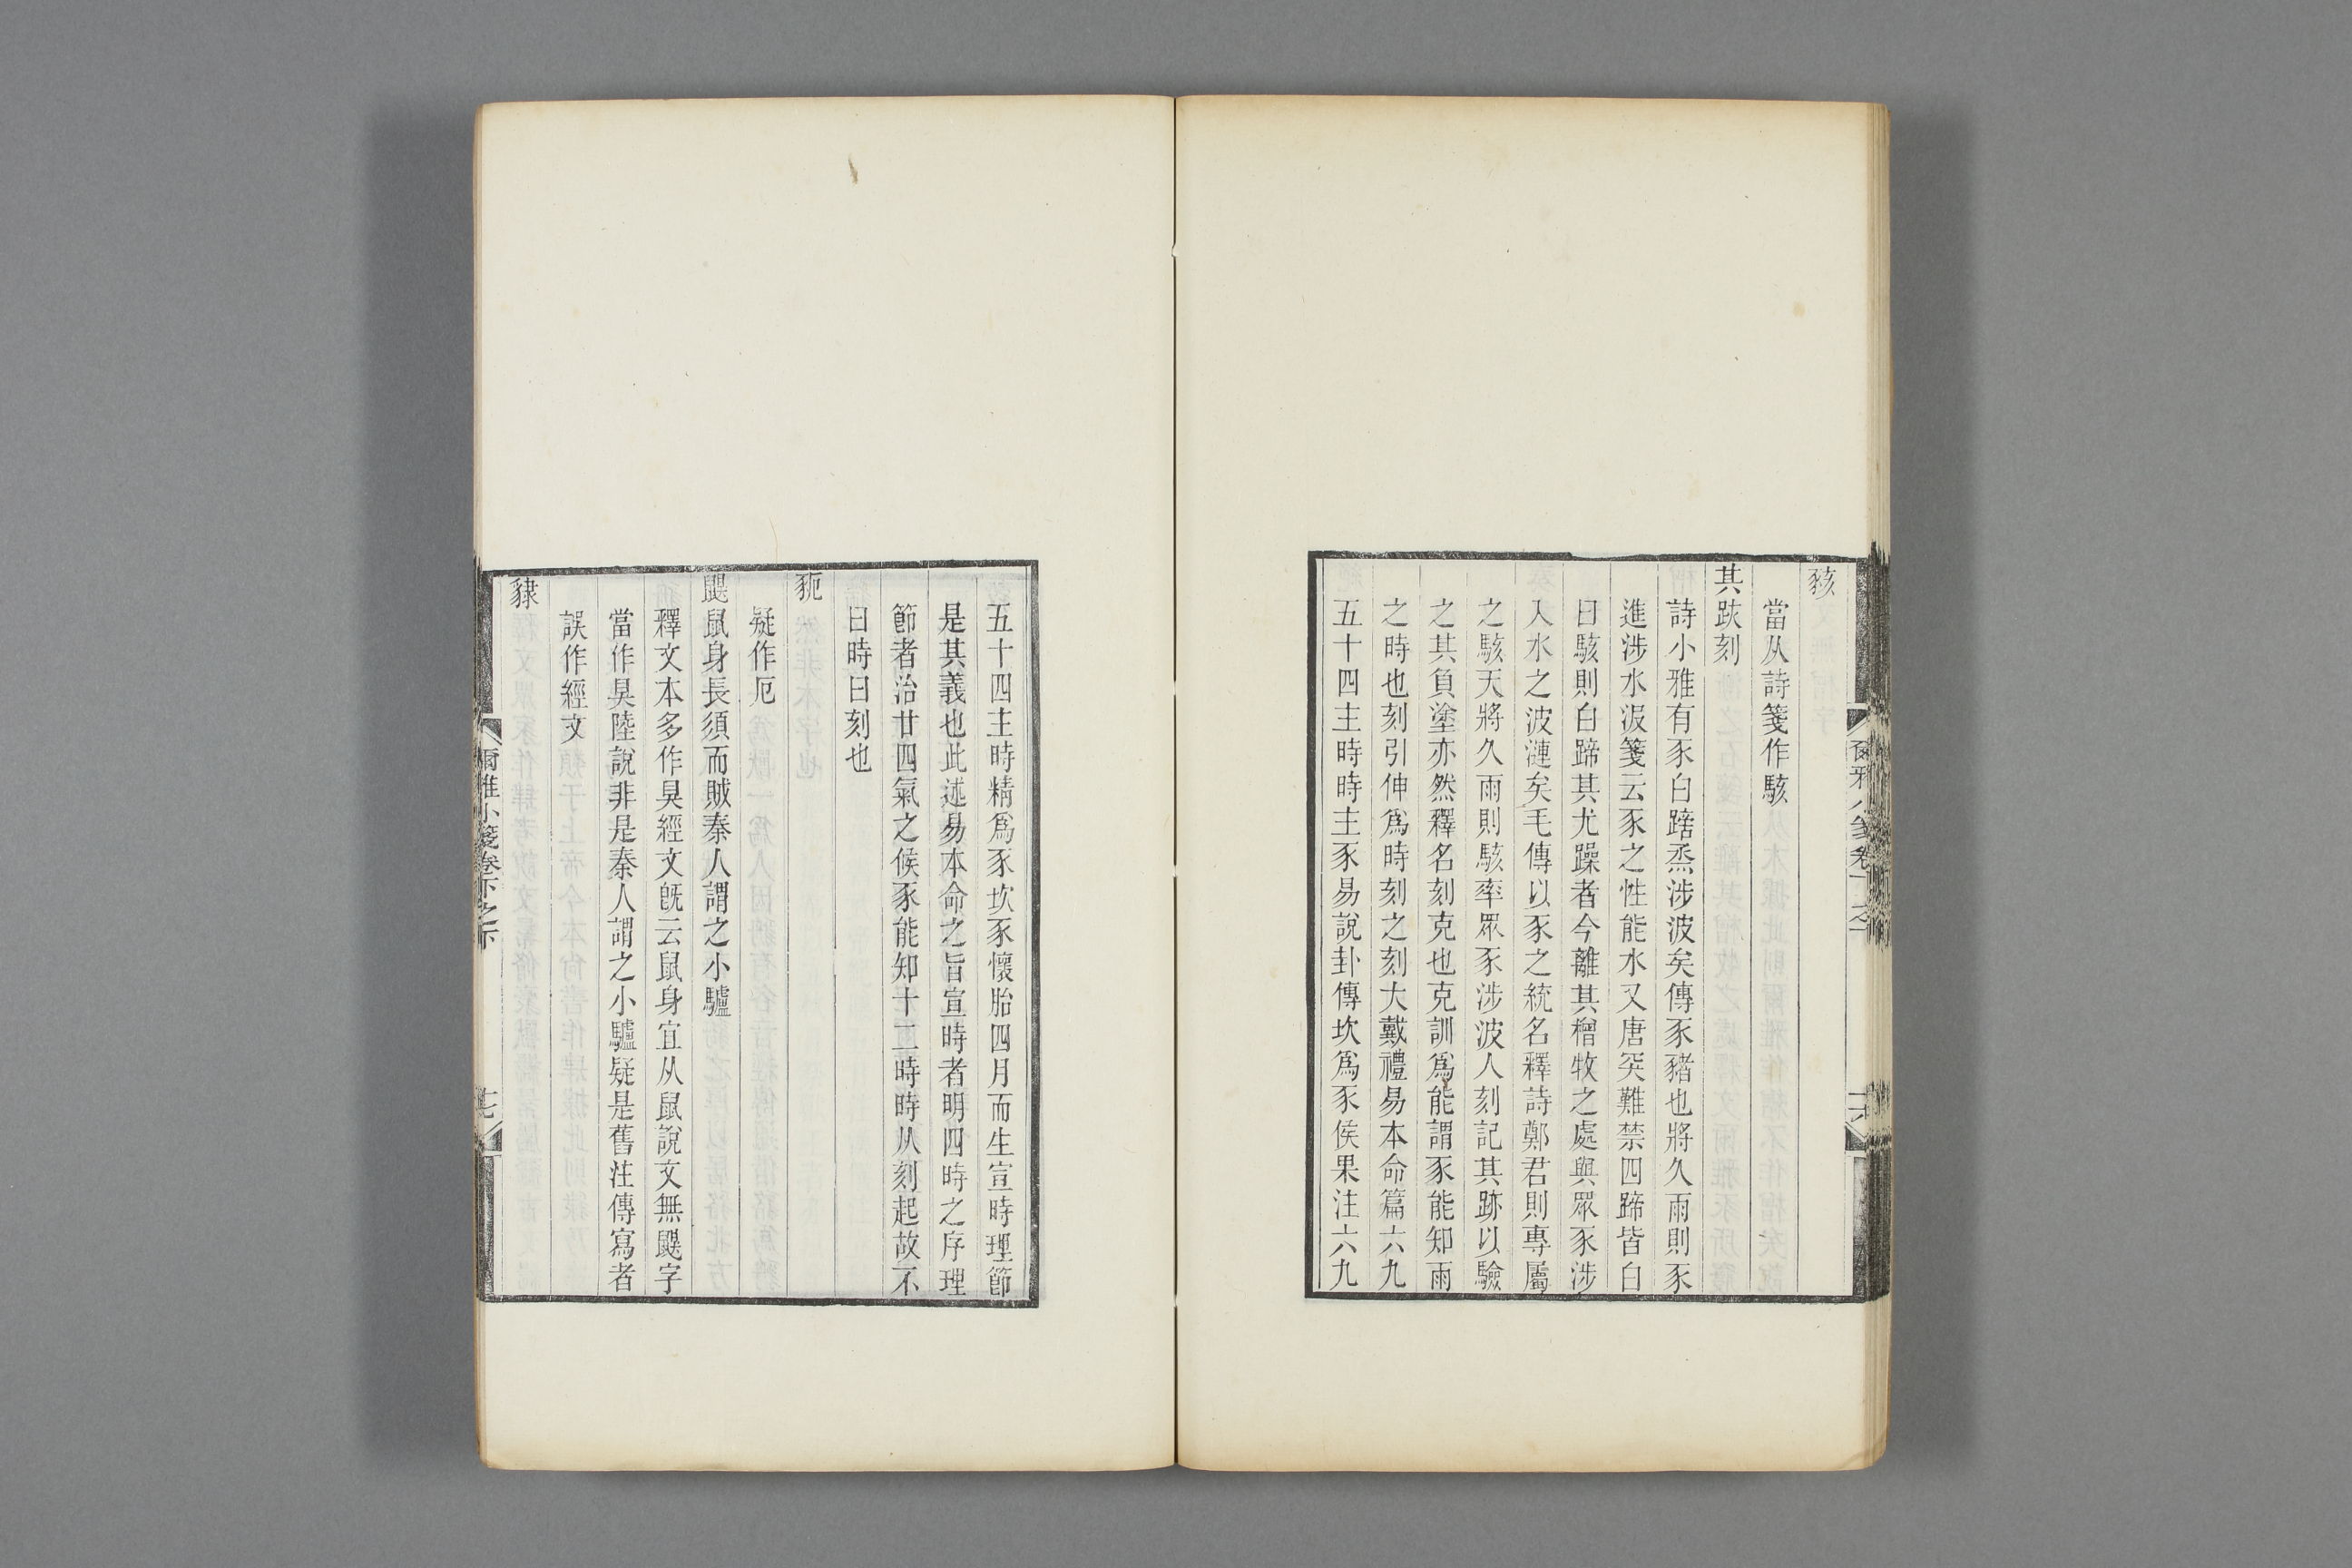 豥
當从詩箋作駭
其跡刻
詩小雅有豕白蹢烝涉波矣傳豕豬也將久雨則豕
進涉水浪箋云豕之性能水又唐突難禁四蹄皆白
曰駭則白蹄其尤躁者今離其橧牧之處與眾豕涉
入水之波漣矣毛傳以豕之統名釋詩鄭君則專屬
之駭天將久雨則駭率眾豕涉波人刻記其跡以驗
之其負塗亦然釋名刻克也克訓為能謂豕能知雨
之時也刻引伸為時刻之刻大戴禮易本命篇六九
五十四主時時主豕易說卦傳坎為豕侯果注六九
五十四主時精為豕坎豕懷胎四月而生宣時理節
是其義也此述易本命之旨宣時者明四時之序理
節者治廿四氣之候豕能知十二時時从刻起故不
曰時曰刻也
豟
疑作厄
鼳鼠身長須而賊秦人謂之小驢
釋文本多作狊經文旣云鼠身宜从鼠說文無鼳字
當作狊陸說非是秦人謂之小驢疑是舊注傳寫者
誤作經文
貄
爾雅小箋卷下之下